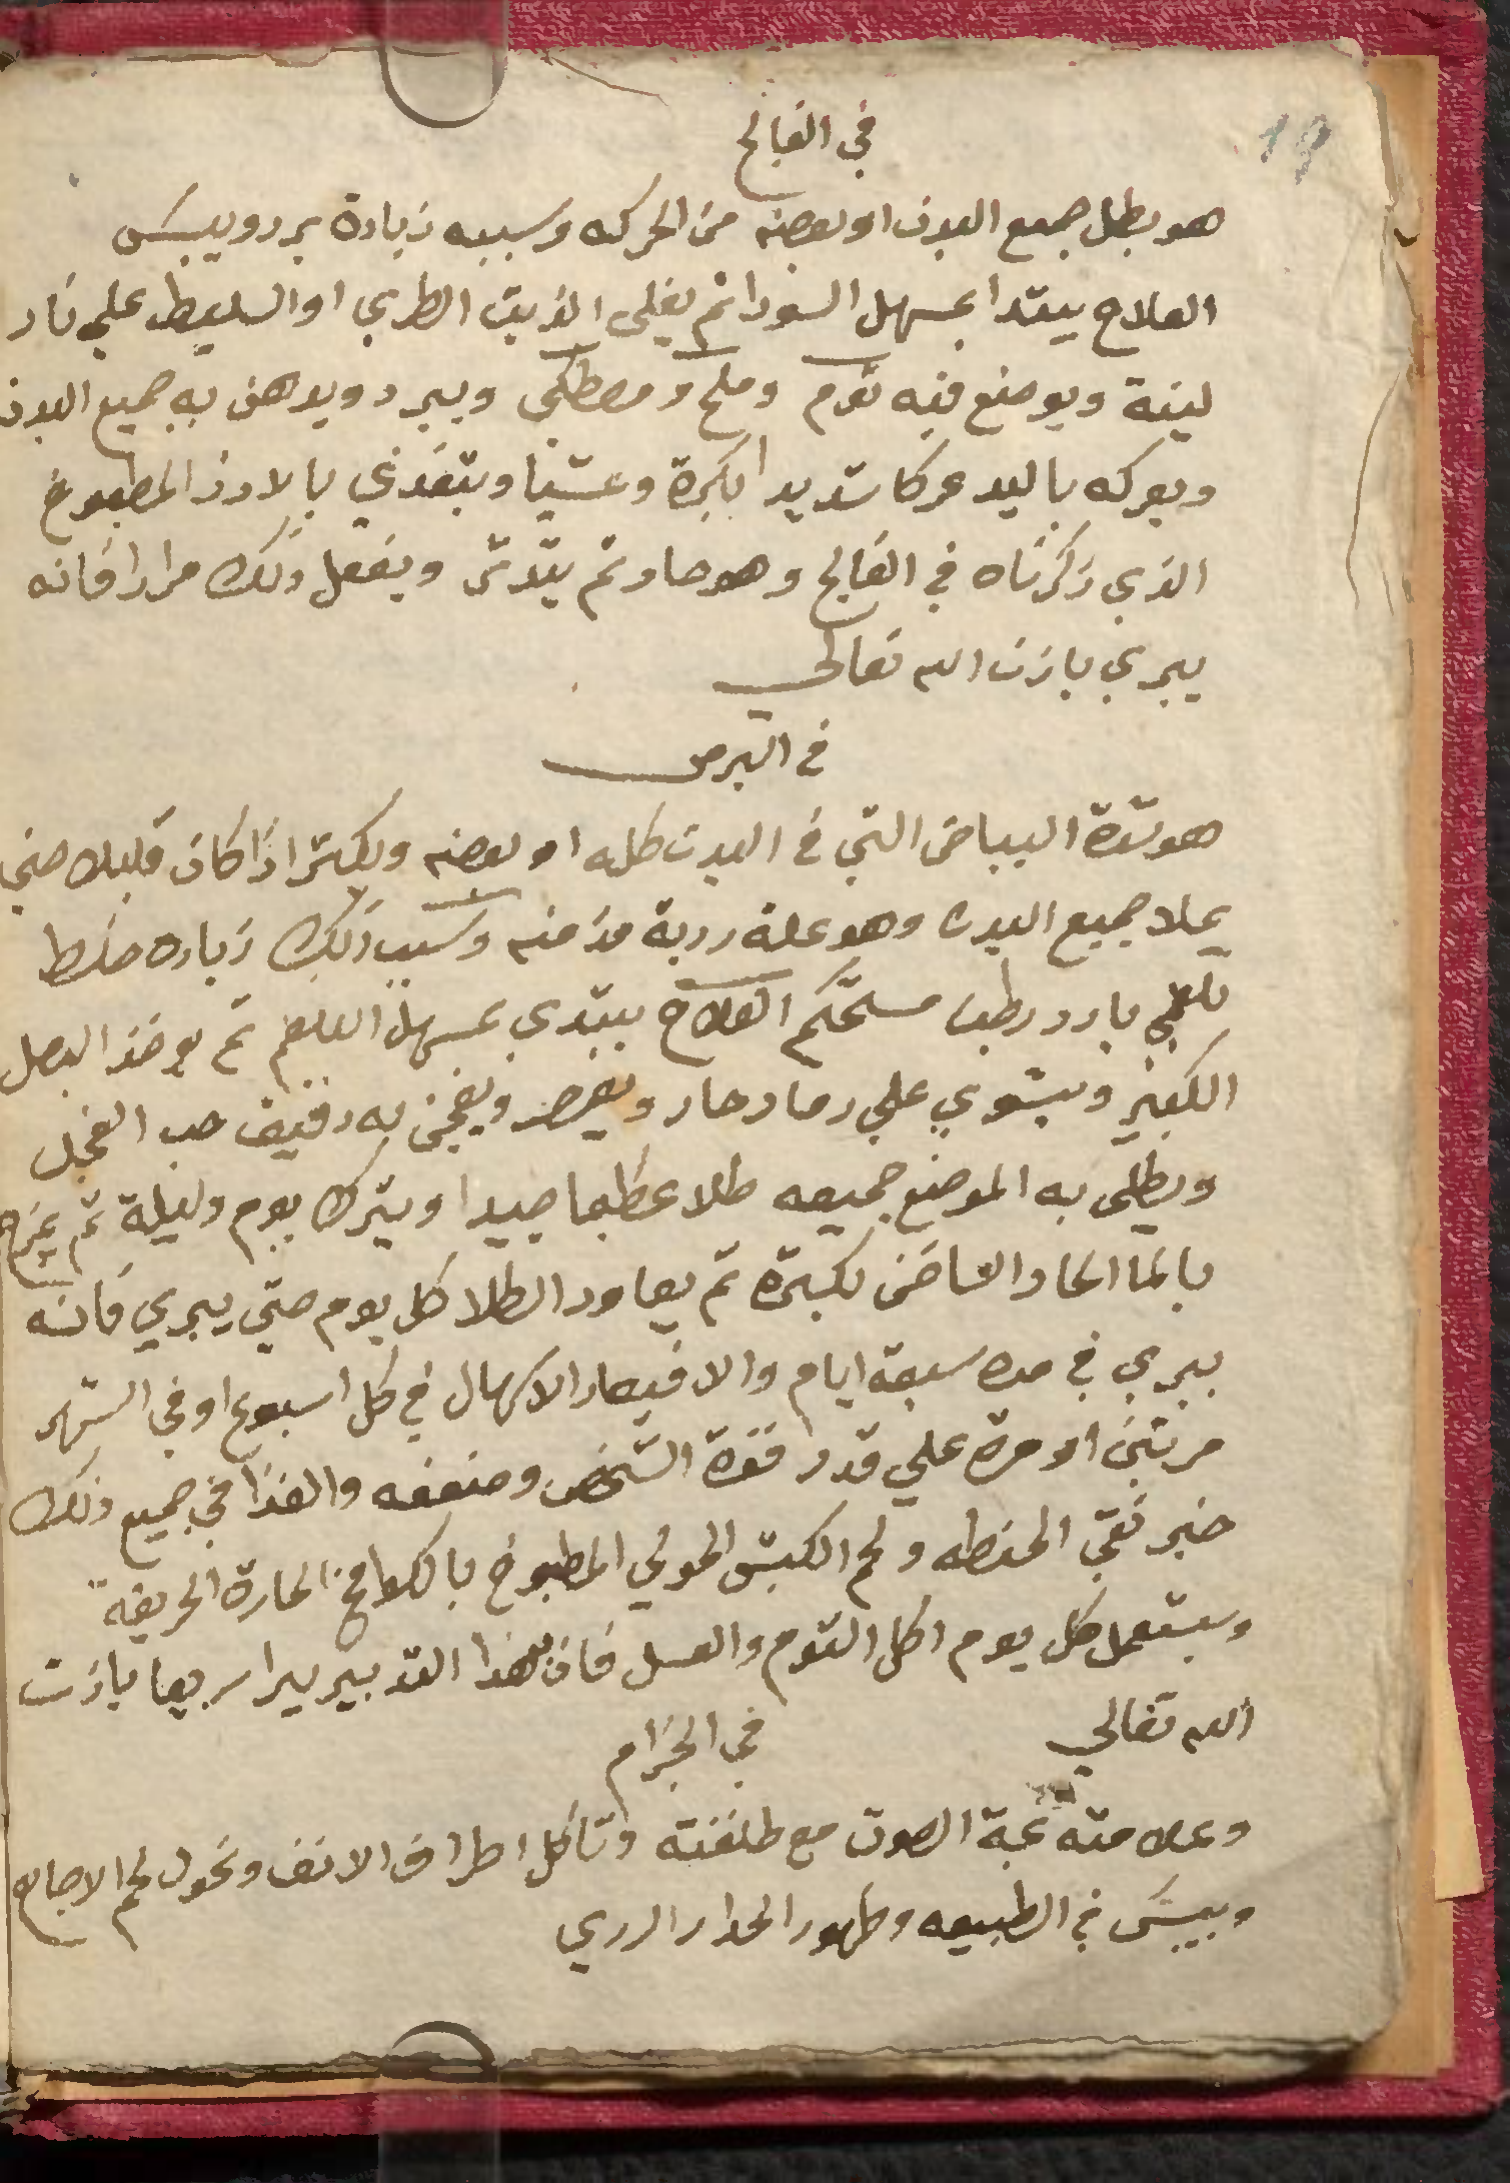 19
في الفالج
هو بطل جميع البدن او بعضه من الحركه وسببه زيادة برد ويبس
العلاج يبتدا بمسهل السودا ثم يغلى الزيت الطري او السليط علي نار
لينة ويوضع فيه ثوم وملح ومصطكي ويبرد ويدهن به جميع البدن
ويعركه باليد عركا شديدا بكرة وعشيا ويتغذي بالارز المطبوخ
الذي ذكرناه في الفالج وهو حار ثم يتدثر ويفعل ذلك مرارا فانه
يبري باذن الله تعالي
في البرص
هو شدة البياض التي في البدن كله او بعضه ويكثر اذا كان قليلا حتي
يملا جميع البدن وهو علة ردية مزمنه وسبب ذلك زياده خلط
بلغمي بارد رطب مستحكم العلاج يبتدي بمسهل البلغم ثم يوخذ البصل
الكبير ويشوي علي رماد حار ويعصر ويعجن به دقيق حب الفجل
ويطلى به الموضع جميعه طلا عظيما جيدا ويترك يوم وليلة ثم يمزج
بالما الحار والصاخن بكرة ثم يعاود الطلا كل يوم حتي يبري فانه
يبري في مده سبعة ايام والا فيعاد الاسهال في كل اسبوع او في الشهر
مرتين او مرة علي قدر قوة الشخص وضعفه والغذا في جميع ذلك
خبز نقي الحنطه ولحم الكبش الحولي المطبوخ بالكوامخ الحارة الحريفة
ويستعمل كل يوم اكل الثوم والعسل فان بهذا التدبير يبرا سريعا باذن
الله تعالي
في الجذام
وعلامته بحة الصوت مع وتاكل اطراف الانف ونحول لحم الاصابع
ويبس في الطبيعه وظهور الردي